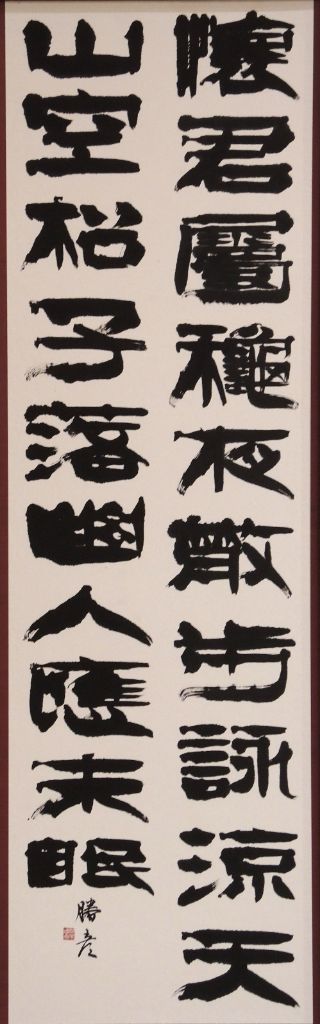 懷君屬穐夜散步詠涼天
山空松子落幽人應未眠
勝彦